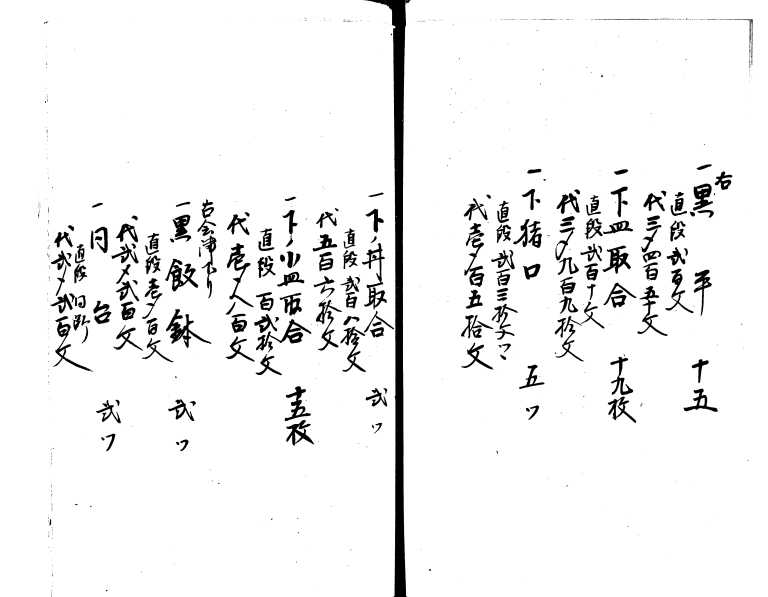 右
一黒平 十五
直段弐百文
代三〆四百五十文
一下皿取合 十九枚
直段弐百十文
代三〆九百九拾文
一下猪口 五ツ
直段弐百三拾文ツヽ
代壱〆百五拾文
一下ノ丼取合 弐ツ
直段弐百八拾文
代五百六拾文
一下ノ小皿取合 十五枚
直段百弐拾文
代壱〆八百文
右会津下り
一黒飯鉢 弐ツ
直段壱〆百文
代弐〆弐百文
一同台 弐ツ
直段同断
代弐〆弐百文